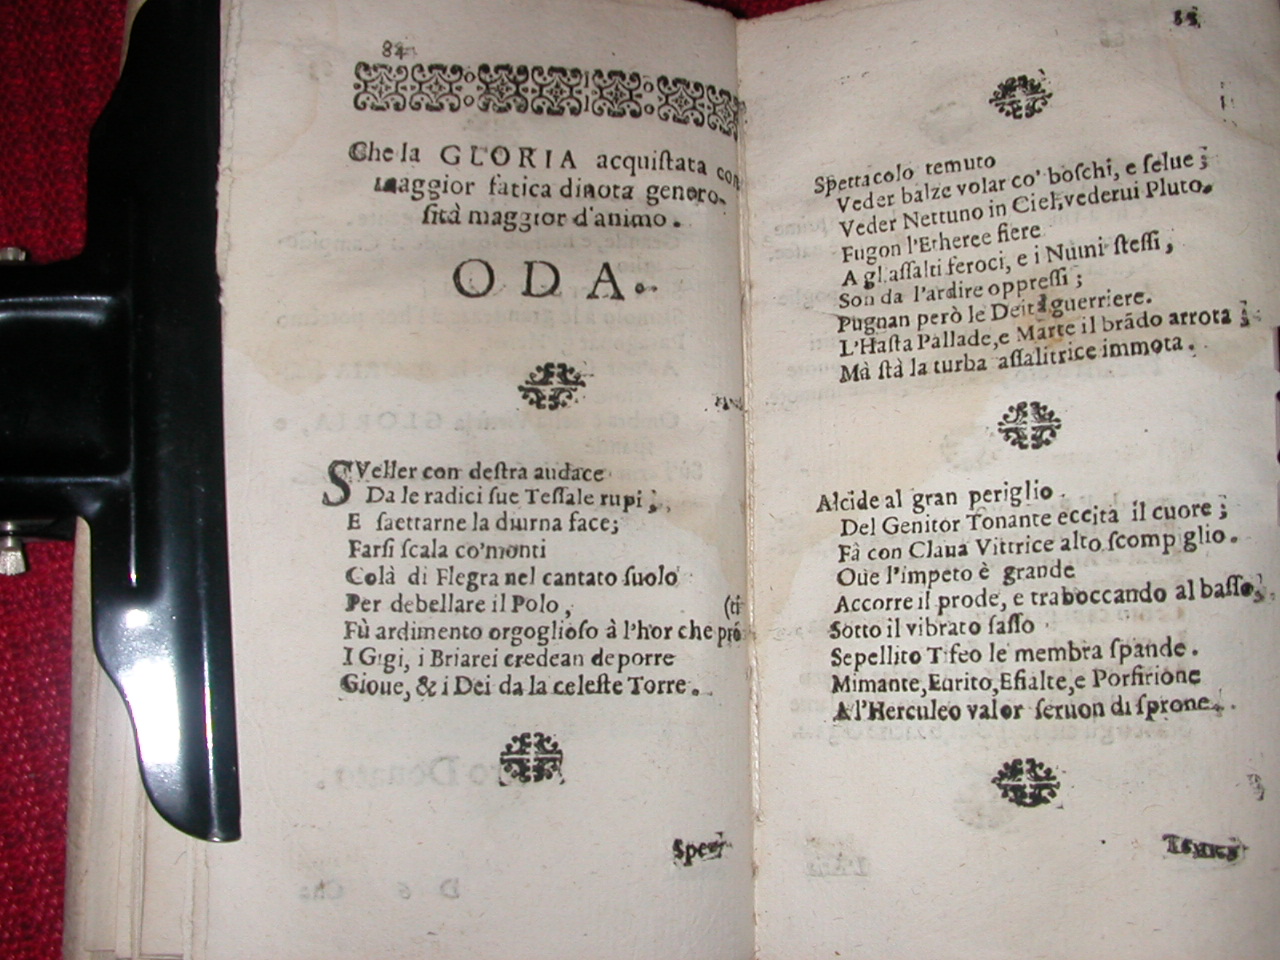 84
Che la GLORIA acquiſtata con
maggior fatica dinota genero-
ſità maggior d'animo.
ODA.
SVeller con deſtra audace
Da le radici ſue Teſſale rupi;
E ſaettarne la diurna face;
Farſi ſcala co'monti
Colà di Flegra nel cantato ſuolo
Per debellare il Polo,
(ti
Fù ardimento orgoglioſo à l'hor che prõ
I Gigi, i Briarei credean deporre
Gioue, & i Dei da la celeſte Torre.
Spet-
85
Spettacolo temuto
Veder balze volar co' boſchi, e ſelue;
Veder Nettuno in Ciel, vederui Pluto.
Fugon l'Etheree fiere
A gl'aſſalti feroci, e i Numi ſteſſi,
Son da l'ardire oppreſſi;
Pugnan però le Deità guerriere.
L'Haſta Pallade, e Marte il brãdo arrota;
Mà ſtà la turba aſſalitrice immota.
Alcide al gran periglio
Del Genitor Tonante eccita il cuore;
Fà con Claua Vittrice alto ſcompiglio.
Oue l'impeto è grande
Accorre il prode, e traboccando al baſſo,
Sotto il vibrato ſaſſo
Sepellito Tifeo le membra ſpande.
Mimante, Eurito, Efialte, e Porfirione
A l'Herculeo valor ſeruon di ſprone.